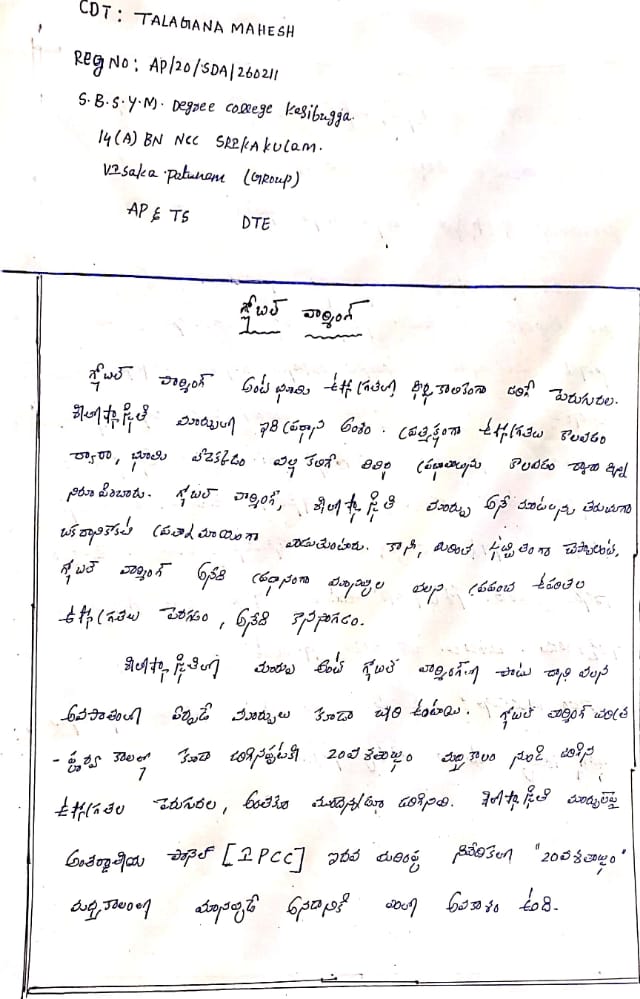 CDT: TALAGANA MAHESH
Reg No: AP/20/SDA/260211
S.B.S.Y.M. Degree college Kasibugga.
14(A) BN NCC SRIKAKULAM.
VISaka Patunam (GROUP)
AP & TS DTE
గ్లోబల్ వార్మింగ్
గ్లోబల్ వార్మింగ్ అంటే భూమి ఉష్ణోగ్రతల్లో దీర్ఘకాలికంగా జరిగే పెరుగుదల.
శీతోష్ణస్థితి మార్పుల్లో ఇది ప్రధాన అంశం. ప్రత్యక్షంగా ఉష్ణోగ్రతలు కొలవడం
ద్వారా, భూమి వేడెక్కడం వల్ల కలిగే వివిధ ప్రభావాలను కొలవడం ద్వారా దీన్ని
నిరూపించారు. గ్లోబల్ వార్మింగ్, శీతోష్ణస్థితి మార్పు అనే మాటలను తరుచుగా
ఒకదానికొకటి ప్రత్యామ్నాయంగా వాడుతుంటారు. కానీ, మరింత స్పష్టంగా చెప్పాలంటే,
గ్లోబల్ వార్మింగ్ అనేది ప్రధానంగా మానవుల వలన ప్రపంచ ఉపరితల
ఉష్ణోగ్రతలు పెరగడం, అనేది కొనసాగడం.
శీతోష్ణస్థితిలో మార్పు అంటే గ్లోబల్ వార్మింగ్‌తో పాటు దాని వలన
అవపాతంలో ఏర్పడే మార్పులు కూడా ఇమిడి ఉంటాయి. గ్లోబల్ వార్మింగ్ చరిత్ర
- పూర్వ కాలంలో కూడా జరిగినప్పటికీ 20వ శతాబ్దం మధ్యకాలం నుండి జరిగిన
ఉష్ణోగ్రతల పెరుగుదల, అంతకు మునుపెన్నడూ జరిగినది. శీతోష్ణస్థితి మార్పులపై
అంతర్జాతీయ పానెల్ [IPCC] ఐదవ మదింపు నివేదికలో "20వ శతాబ్దం
మధ్యకాలంలో మానవుడే అనడానికి ఎంతో అవకాశం ఉంది.